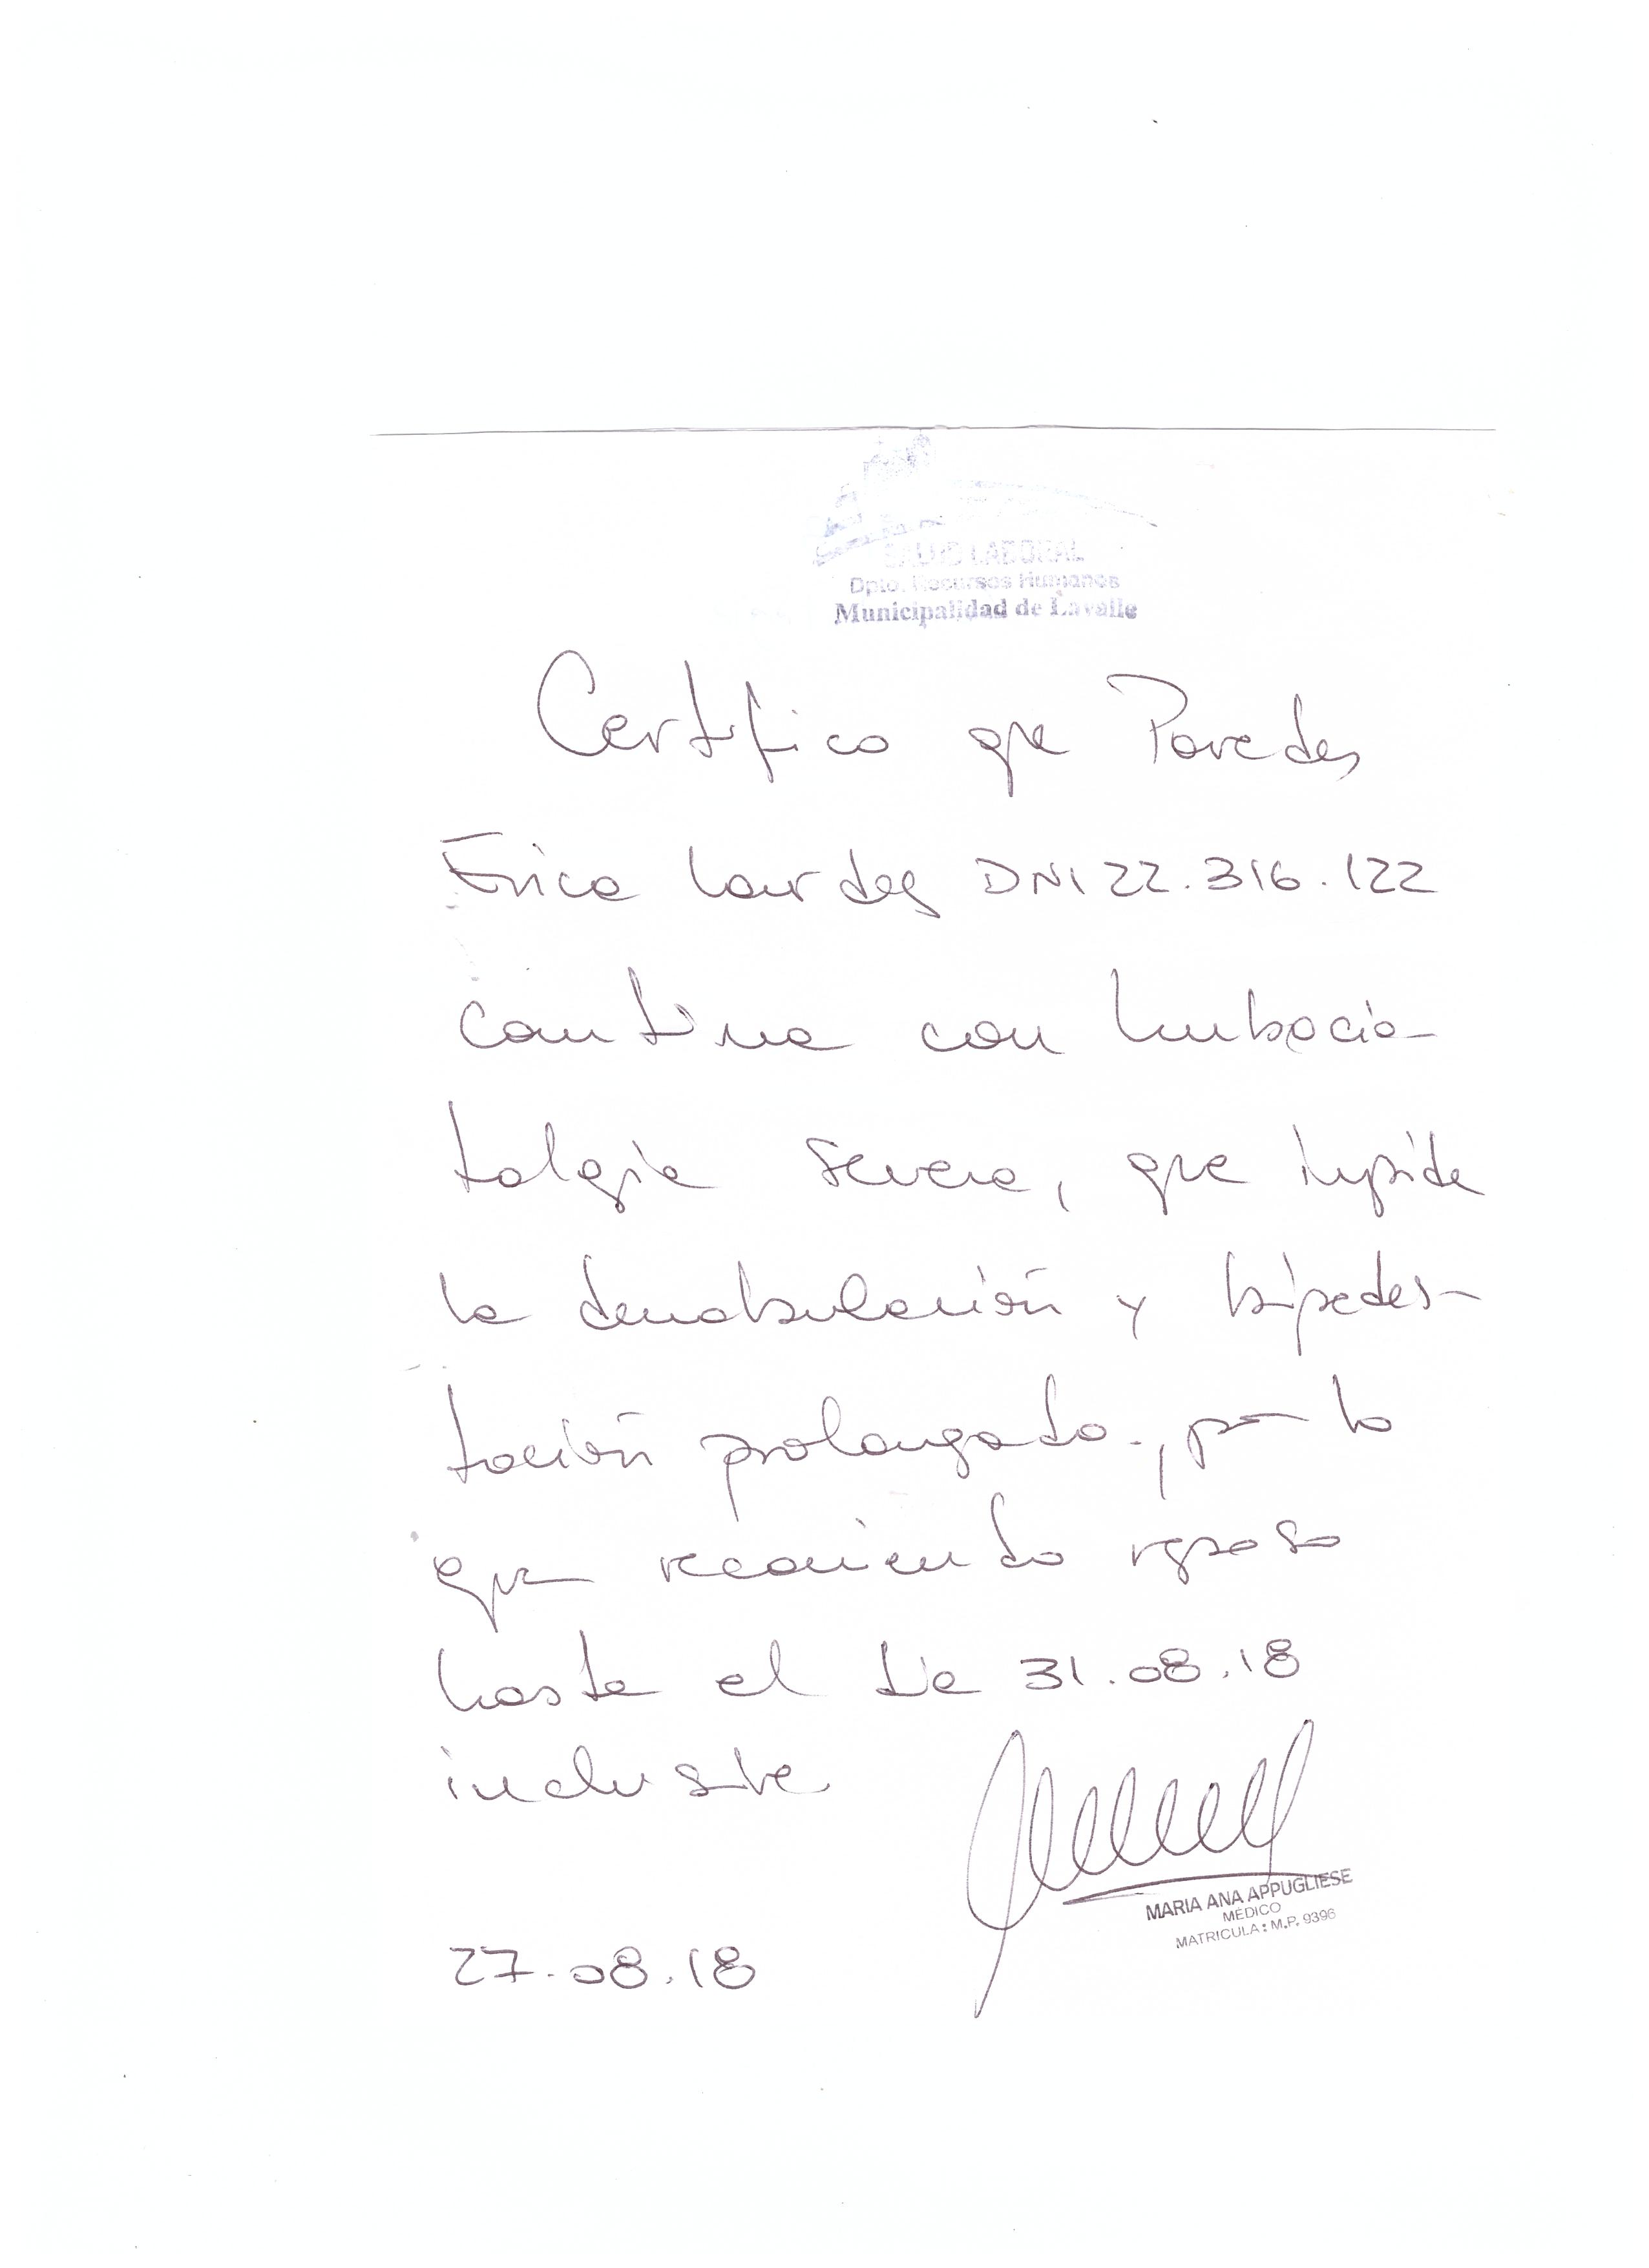 SALUD LABORAL
Dpto. Recursos Humanos
Municipalidad de Lavalle
Certifico que Paredes
Erica Lourdes DNI 22.316.122
continua con lumbocia-
talgia severa, que impide
la deambulación y bipedes-
tación prolongada., por lo
que recomiendo reposo
hasta el día 31.08.18
inclusive
MARIA ANA APPUGLIESE
MÉDICO
MATRICULA: M.P. 9396
27.08.18